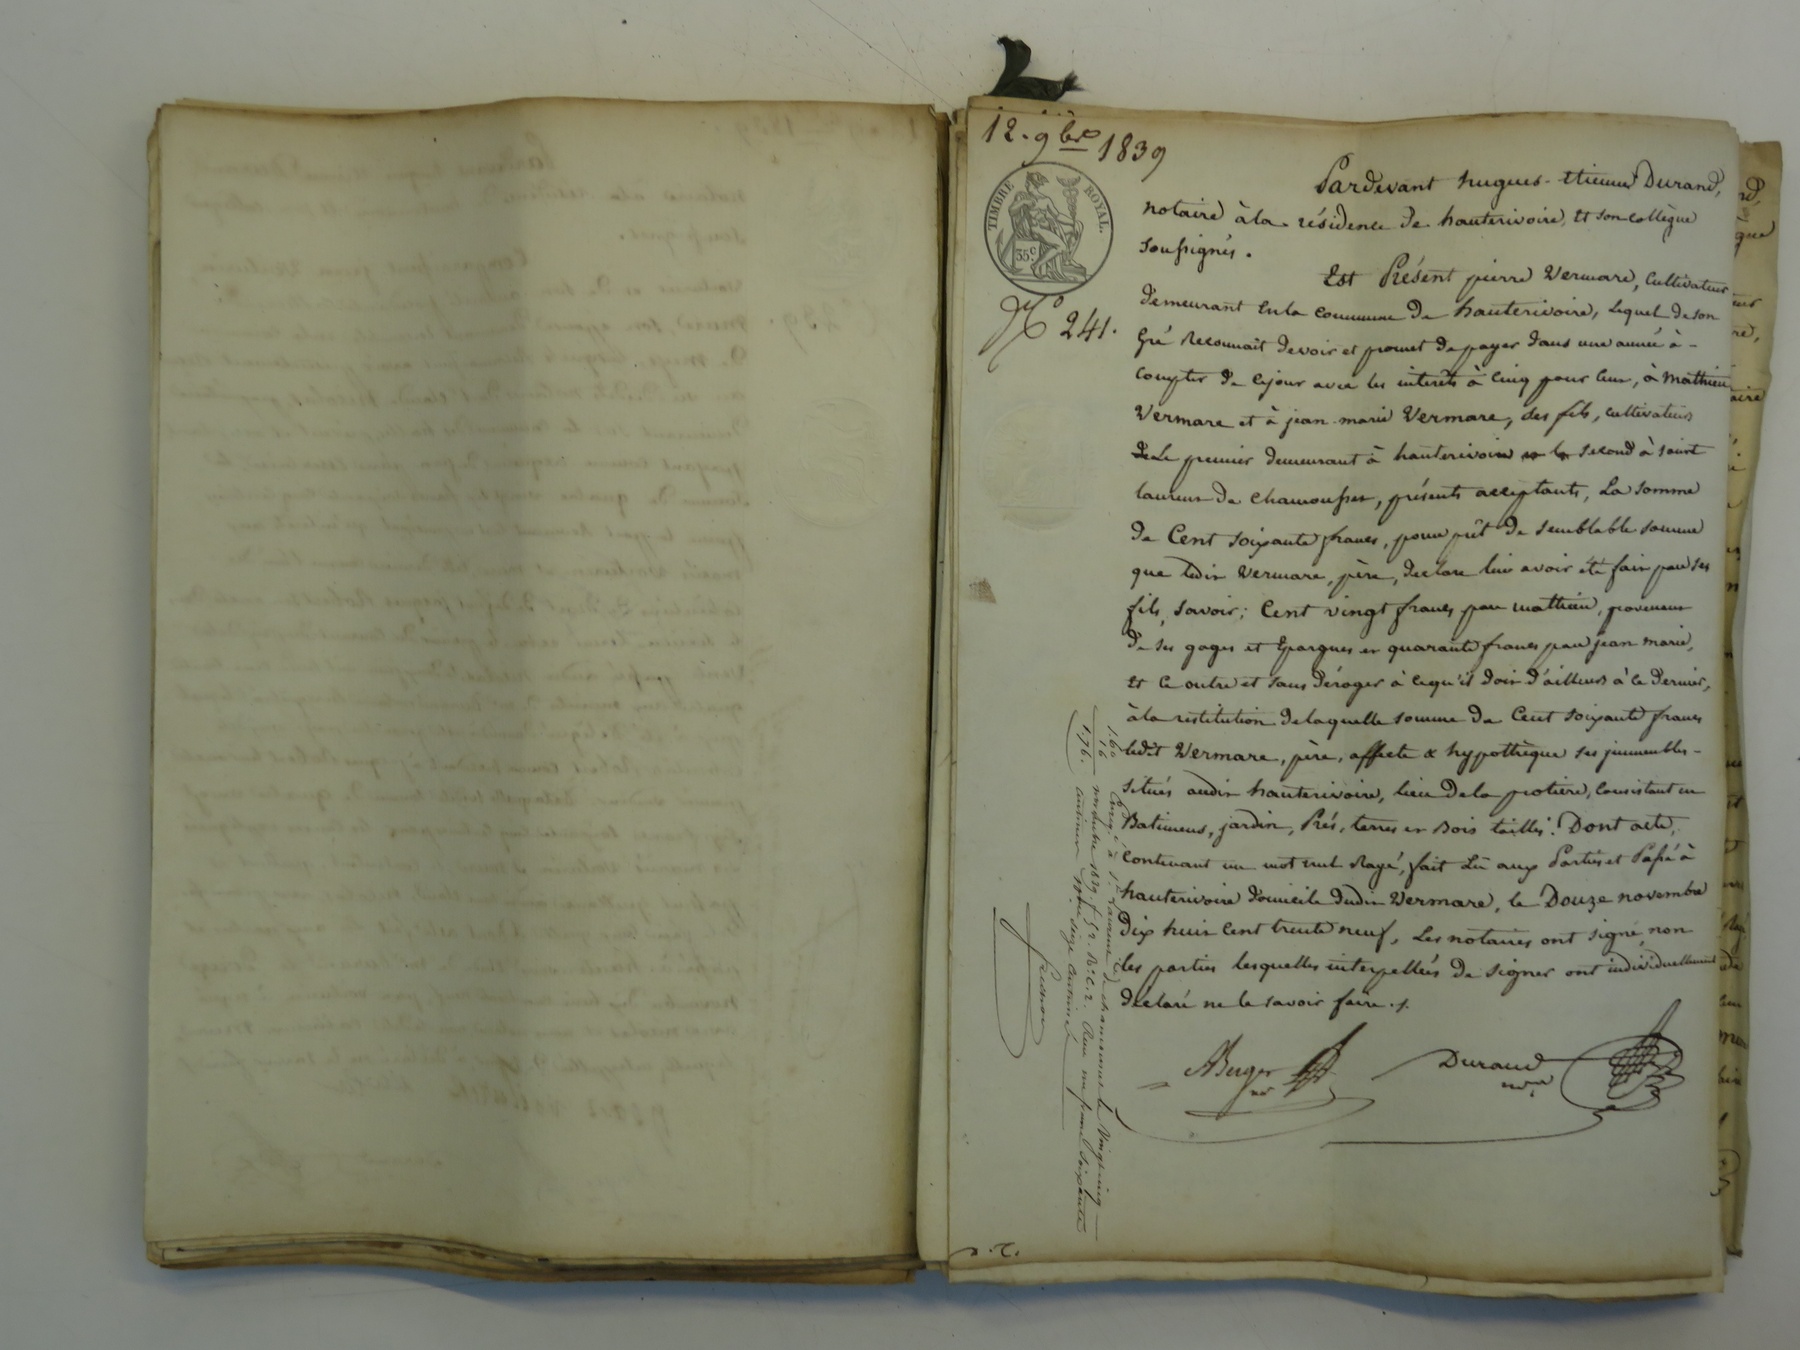 12. 9bre 1839
TIMBRE ROYAL.
35c
No 241.
Pardevant hugues-Etienne Durand,
notaire à la résidence de hauterivoire, Et son collègue
soussignés.
Est Présent pierre Vermare, cultivateur
demeurant en la commune de hauterivoire, lequel de son
gré Reconnait devoir et promet de payer dans une année à-
compter de cejour avec les interêts à cinq pour cent, à mathieu
Vermare et à jean-marie Vermare, ses fils, cultivateurs
Le premier demeurant à hauterivoire le second à saint
laurent de chamousset, présents acceptants, La somme
de Cent soixante francs, pour prêt de semblable somme
que ledit Vermare, père, declare lui avoir été fait par ses
fils, savoir; Cent vingt francs par mathieu, provenant
de ses gages et Epargnes et quarante francs par jean marie,
et ce outre et sans déroger à cequ'il doit d'ailleurs à ce dernier,
à la restitution delaquelle somme de Cent soixante francs
ledit Vermare, père, affecte & hypothèque ses immeubles-
situés audit hauterivoire, lieu dela protière, consistant en
Batimens, jardin, Prés, terres et Bois taillis. Dont acte,
contenant un mot nul Rayé, fait Lu aux Parties et Passé à
hauterivoire domicile dudit Vermare, le Douze novembre
dix huit cent trente neuf, Les notaires ont signé, non
les parties lesquelles interpellées de signer ont individuellement
declaré ne le savoir faire.
ABerger
nre
Durand
nore
1.60
16
1.76
Enregé à St Laurent de chamousset le Vingt cinq
novembre 1839, fo 52. Ro C. 2. Reçu un franc soixante
centimes Dixme seize centimes